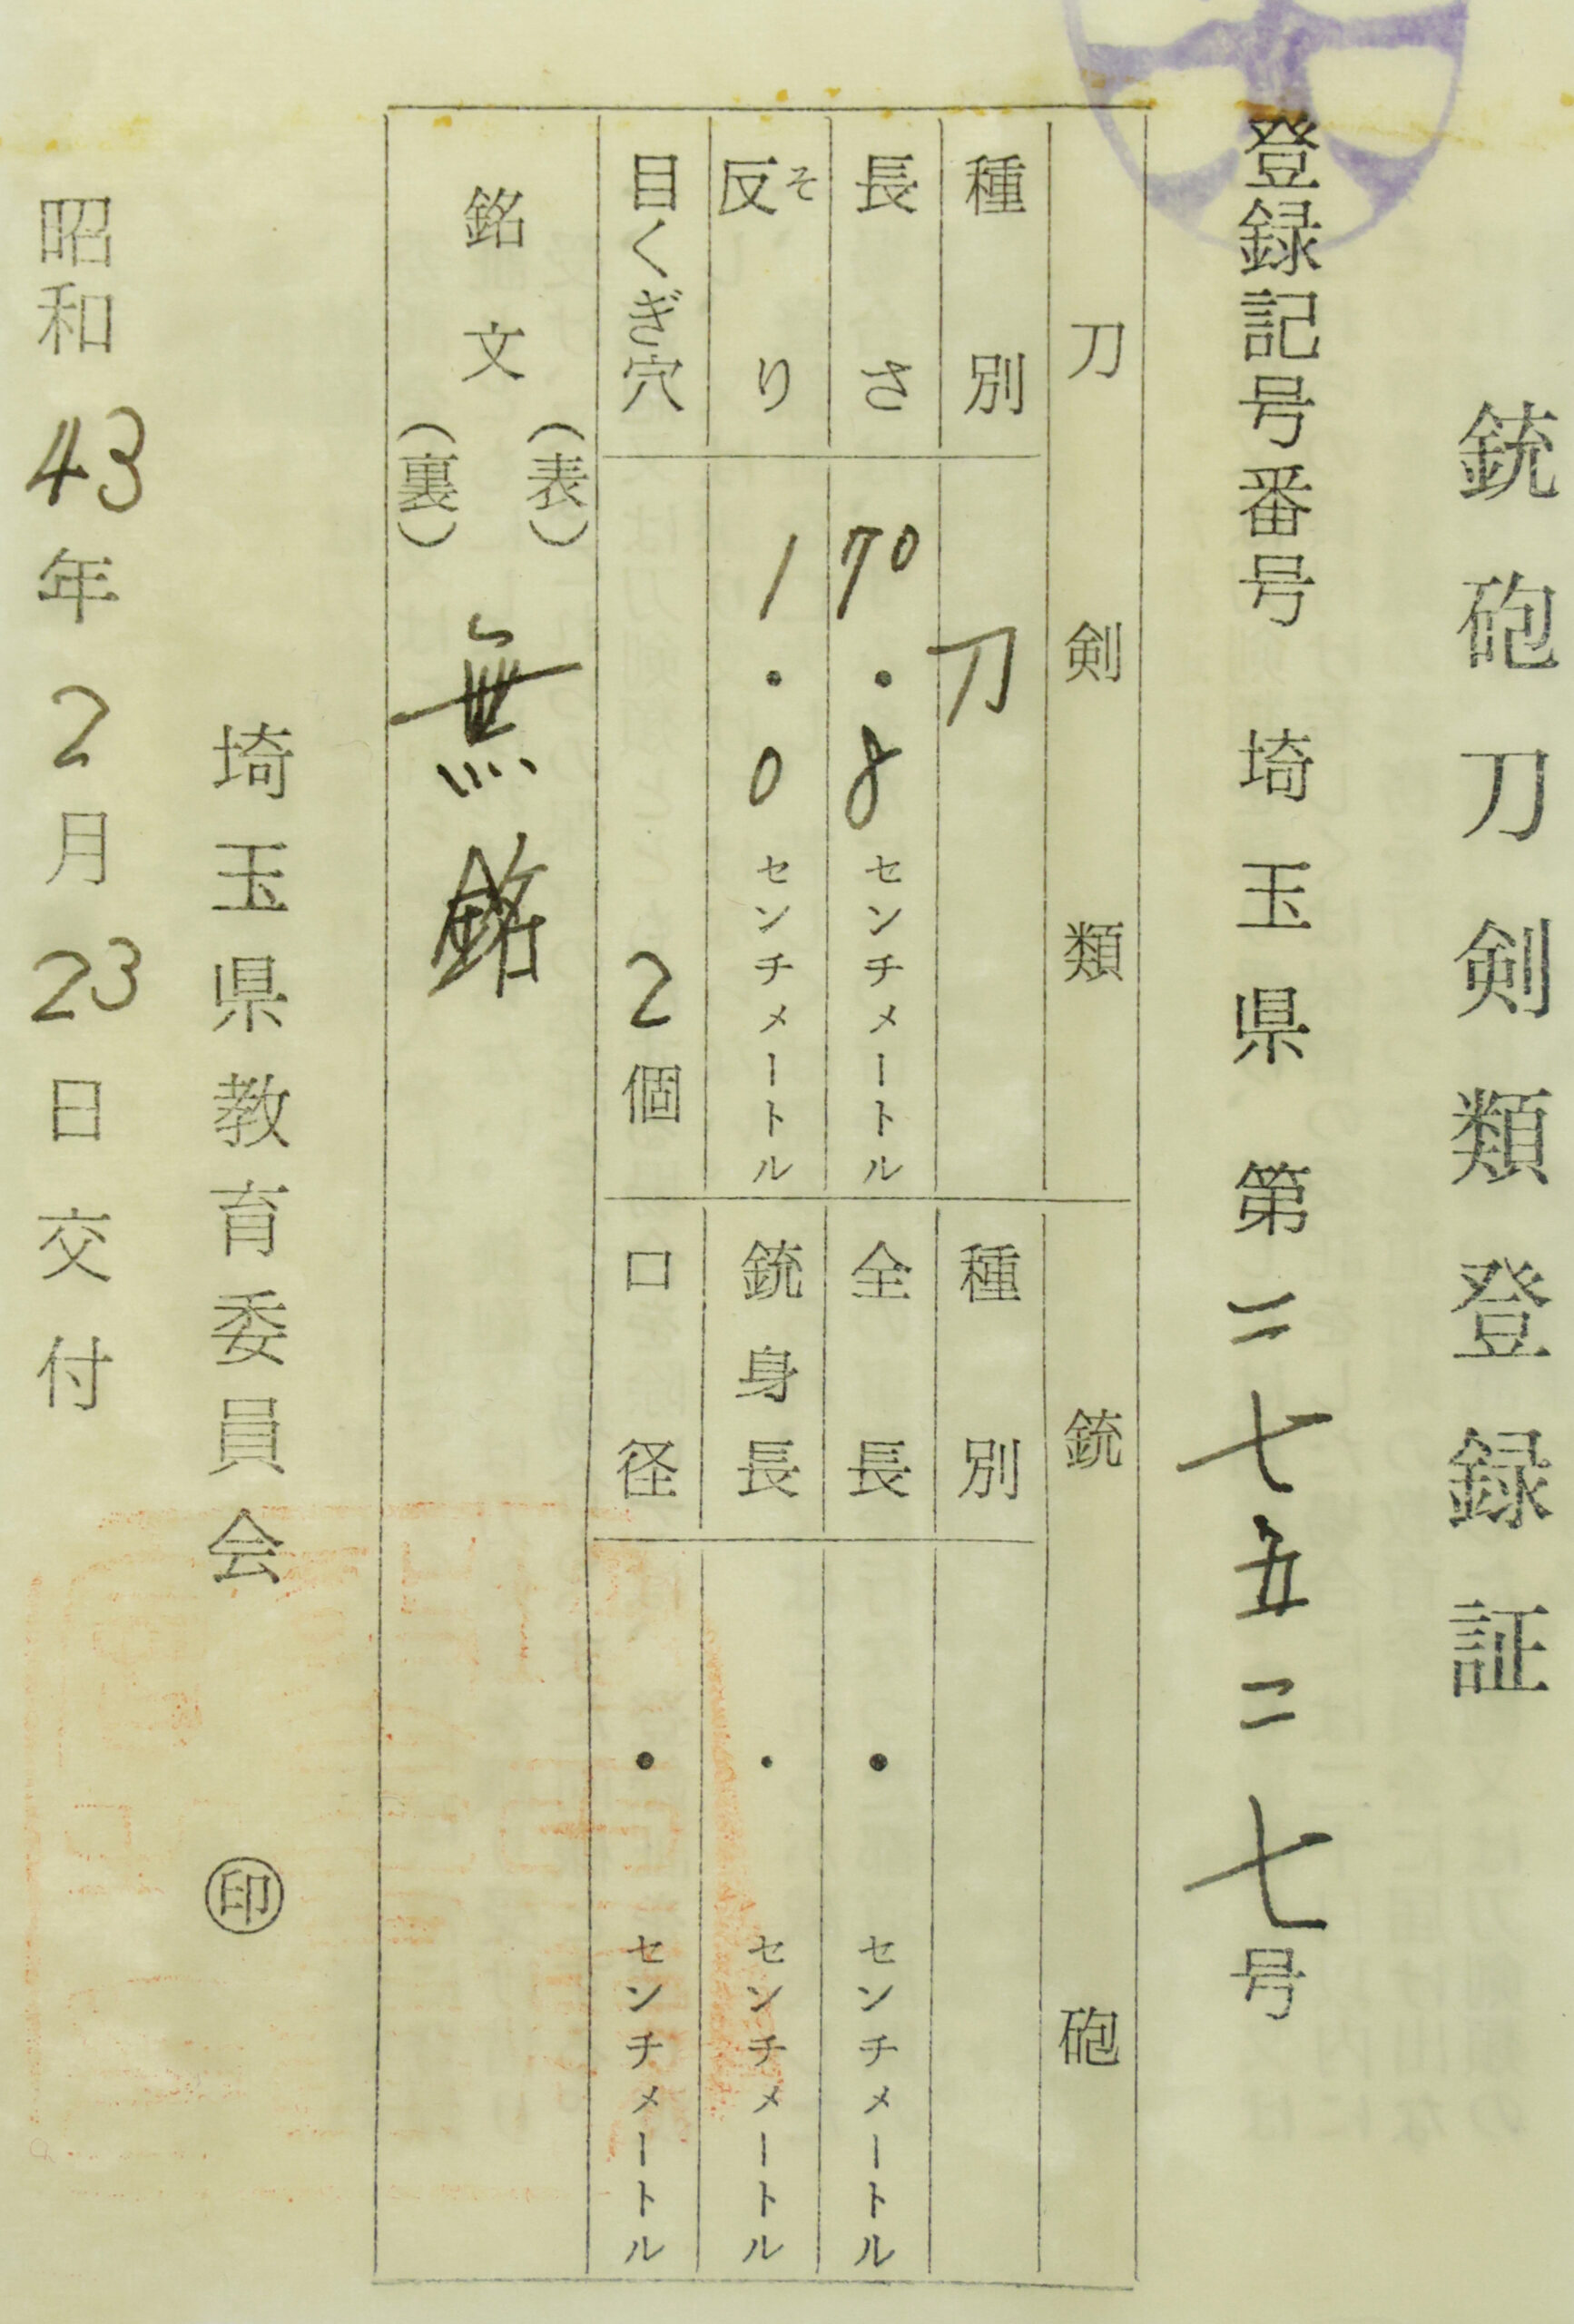 銃砲刀剣類登録証
登録記号番号 埼玉県 第二七五二七号
刀剣類 銃砲
種別 刀 種別
長さ 70・8センチメートル 全長 ・センチメートル
反り そ 1・0センチメートル 銃身長 ・センチメートル
目くぎ穴 2個 口径 ・センチメートル
銘文 (表)
(裏) 無銘
埼玉県教育委員会 ㊞
昭和43年2月23日交付